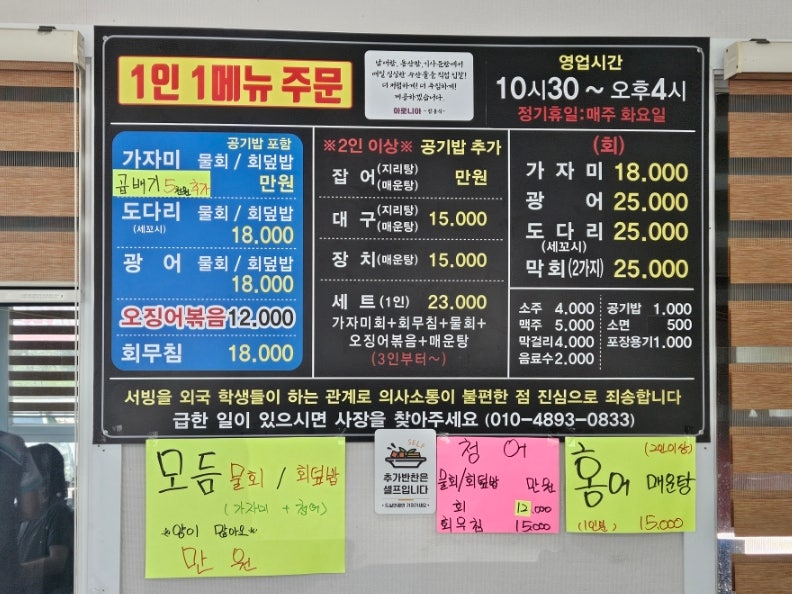 1인 1메뉴 주문
매일 싱싱한 수산물을 직접 입찰!
더 저렴하게! 더 푸짐하게!
제공하겠습니다.
영업시간
10시30 ~ 오후4시
정기휴일:매주 화요일
공기밥 포함
가자미 물회 / 회덮밥
만원
곱배기 5천원 추가
도다리 물회 / 회덮밥
(세꼬시)
18.000
광 어 물회 / 회덮밥
18.000
오징어볶음 12.000
회무침 18.000
※2인 이상※ 공기밥 추가
잡 어 (지리탕) (매운탕) 만원
대 구 (지리탕) (매운탕) 15.000
장 치 (매운탕) 15.000
세 트 (1인) 23.000
가자미회+회무침+물회+
오징어볶음+매운탕
(3인부터~)
(회)
가 자 미 18.000
광 어 25.000
도 다 리 25.000
(세꼬시)
막회(2가지) 25.000
소주 4.000
맥주 5.000
막걸리 4.000
음료수 2.000
공기밥 1.000
소면 500
포장용기 1.000
서빙을 외국 학생들이 하는 관계로 의사소통이 불편한 점 진심으로 죄송합니다
급한 일이 있으시면 사장을 찾아주세요 (010-4893-0833)
모듬 물회 / 회덮밥
(가자미 + 청어)
*양이 많아요*
만 원
SELF
추가반찬은
셀프입니다
청 어
물회/회덮밥 만원
회 12.000
회무침 15000
(2인이상)
홍어 매운탕
(1인분) 15.000